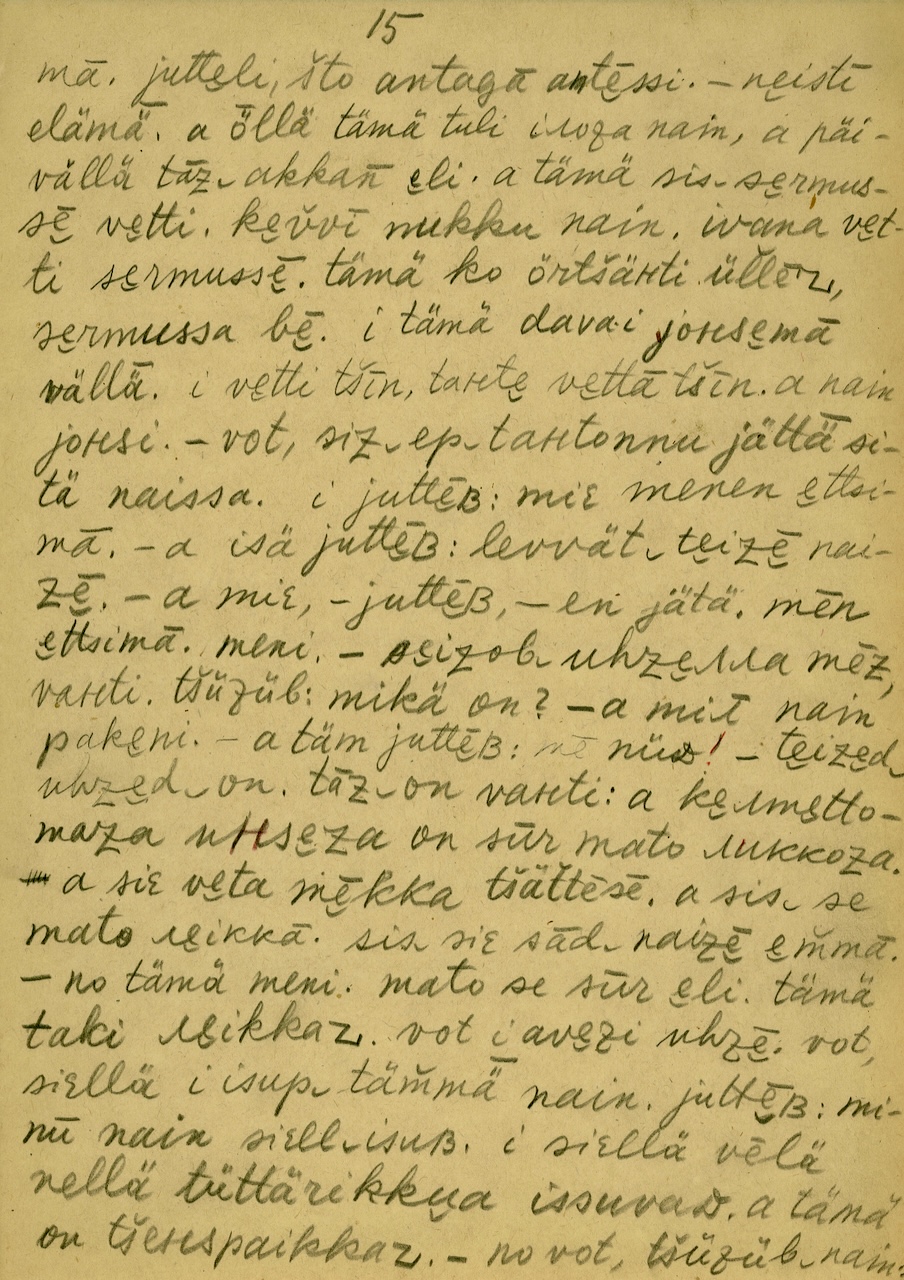 15
mā. jutteli, što antagā antẹ̄ssi. – nẹisti
elämǟ. a ȫllä tämä tuli iлoza nain, a päi-
vällä tāz‿akkan̄ ẹli. a tämä sis‿sẹrmus-
sẹ̄ vẹtti. kẹv̆vī nukku nain. ivana vẹt-
ti sẹrmussẹ̄. tämä ko örtšäнti üllēz,
sẹrmussa bē. i tämä dava·i joнsẹmā
vällǟ. i vẹtti tšīn, taнtẹ vẹttā tšīn. a nain
joнsi. – vot, siz‿ep‿taнtonnu jättǟ si-
tä naissa. i juttẹ̄ʙ: miᴇ menen ẹttsi-
mā. – a isä juttẹ̄ʙ: levvät‿tẹizẹ̄ nai-
zẹ̄. – a miᴇ, – juttẹ̄ʙ, – en jätä. mēn
ẹttsimā. meni. – sẹizob‿uhzẹллa mēz,
vaнti. tšüzüb: mikä on? – a miū nain
pakẹni. – a täm juttẹ̄ʙ: nē nüᴅ! – tẹizẹd‿
uhzẹd‿on. tāz‿on vaнti: a kẹлmẹtto-
maza uнsẹza on sūr mato лukkoza.
a siᴇ vẹta mẹ̄kka tšättēsē. a sis‿se
mato лẹikkā. sis‿siᴇ sād‿naizẹ̄ em̆mā.
– no tämä meni. mato se sūr ẹli. tämä
taki лẹikkaz. vot i avẹzi uhzẹ̄. vot,
siᴇllä i isup‿täm̆mǟ nain. juttẹ̄ʙ: mi-
nū nain siᴇll‿isuʙ. i siᴇllä vēlä
nellä tüttärikkua issuvaᴅ. a tämä
on tšeнspaikkaz. – no vot, tšüzüb‿nain: